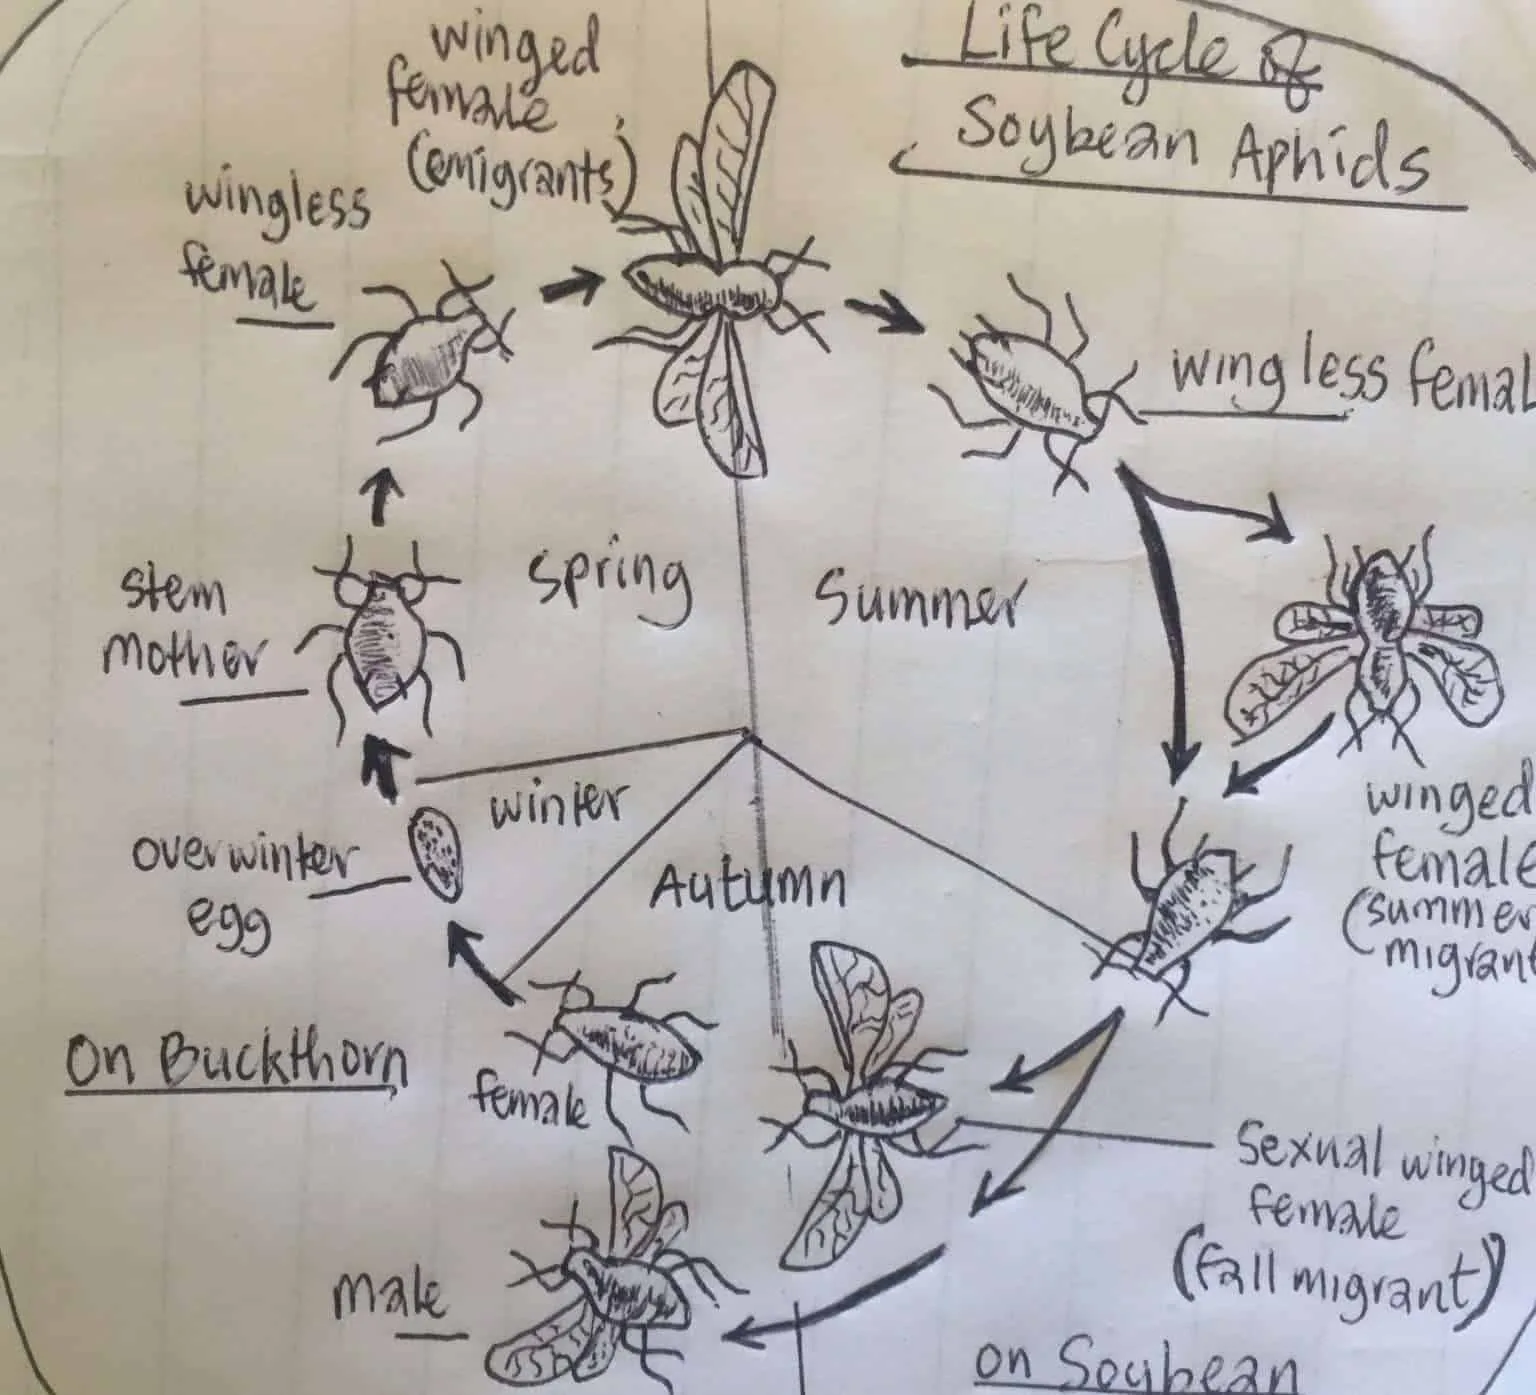 Life Cycle of
Soybean Aphids
winged
female
(emigrants)
wingless
female
wingless femal
spring
Summer
stem
mother
winter
overwinter
egg
Autumn
winged
female
(summer
migrant
On Buckthorn
female
Sexual winged
female
(fall migrant)
male
on Soybean